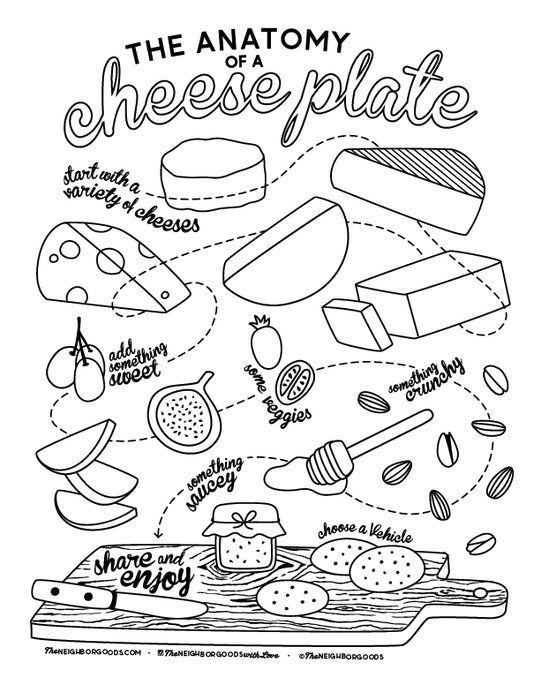 THE ANATOMY
OF A
cheese plate
start with a
variety of cheeses
add
something
sweet
some veggies
something
crunchy
something
saucey
choose a Vehicle
share and
enjoy
TheNEIGHBORGOODS.COM · @TheNEIGHBORGOODSwithLove · ©TheNEIGHBORGOODS